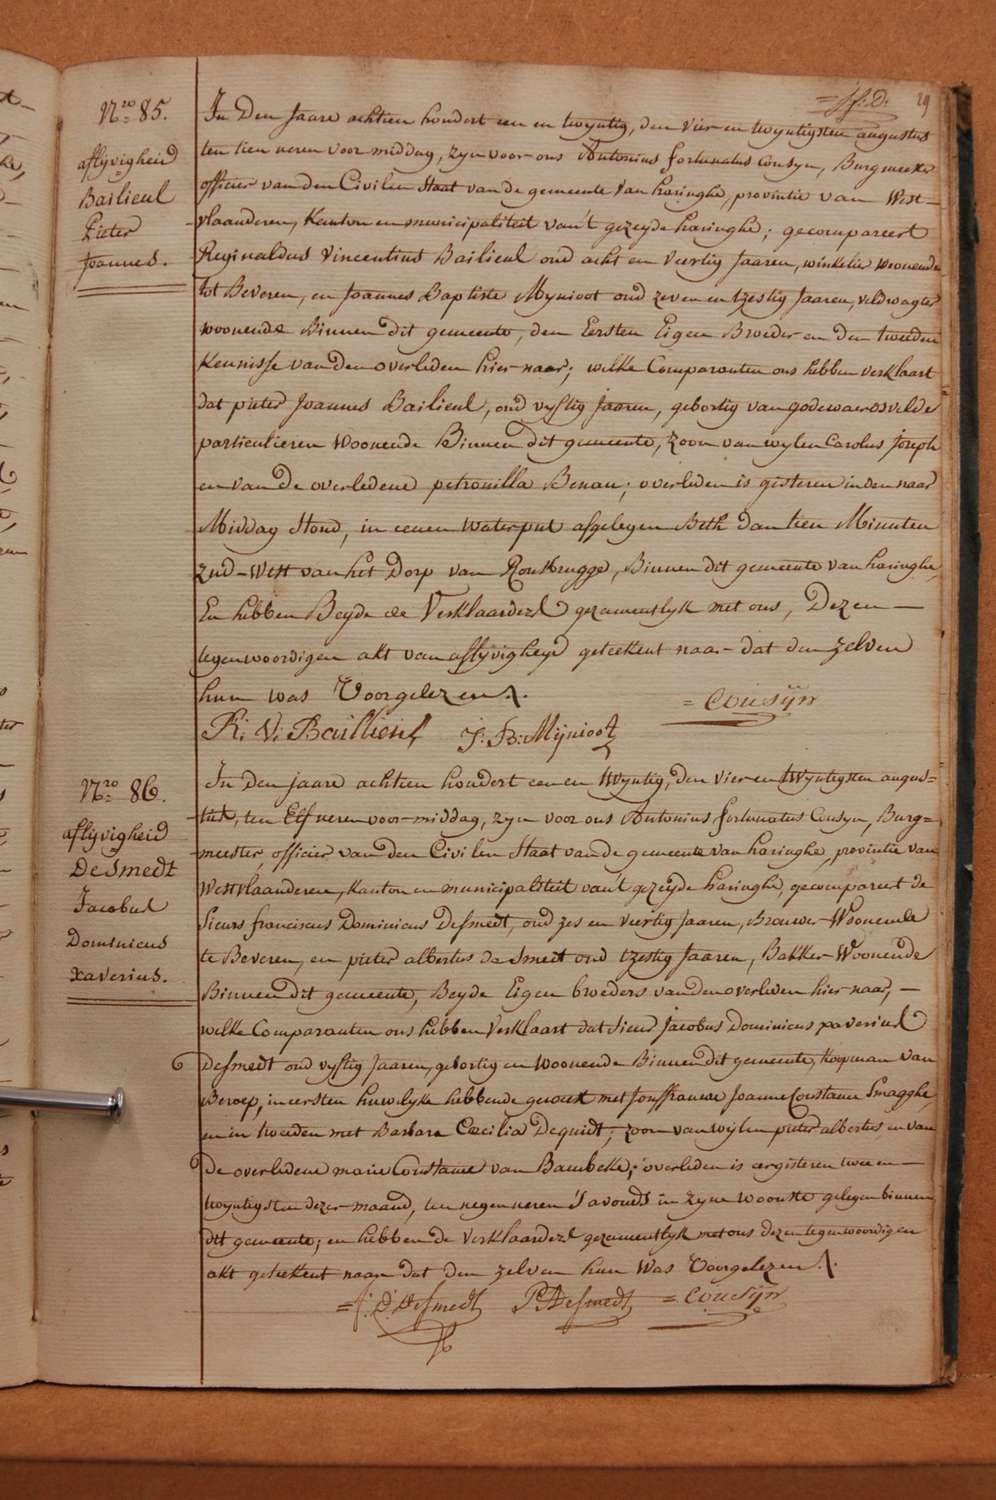 29
N.ro 85.
aflijvigheid
Bailieul
Pieter
Joannes.
In Den Jaare achtien hondert een en twyntig, den vier en twyntigsten augustus
ten tien uren voor middag, zyn voor ons Antonius fortunatus Cousyn, Burgmeester
officier van den Civilen Staat van de gemeente van haringhe, provintie van West-
vlaanderen, Kanton en municipaliteit van't gezeyde haringhe; gecompareert
Reginaldus Vincentius Bailieul oud acht en veertig Jaaren, winkelier woonende
tot Beveren, en Joannes Baptiste Mynioot oud zeven en tzestig Jaaren, veldwagter
woonende Binnen dit gemeente, den Eersten Eigen Broeder en den tweeden
Kennisse van den overleden hier naar; welke Comparanten ons hebben verklaart
dat pieter Joannes Bailieul, oud vyftig Jaaren, gebortig van godewaersvelde
particulieren Woonende Binnen dit gemeente, zoon van wylen Carolus Joseph
en van De overledene petronilla Benau; overleden is gisteren in den naar
Middag Stond, in eenen waterput afgelegen Beth dan tien Minuten
zud-West van het Dorp van Rousbrugge, Binnen dit gemeente van haringhe,
En hebben Beyde de Verklaarders gezamentlyk met ons, Dezen
tegenwoordigen akt van aflijvigheyd geteekent naar dat den zelven
hun was Voorgelezen.
= Cousÿn
R: V: Baillieul J: B: Mÿnioot
N.ro 86.
aflijvigheid
DeSmedt
Jacobus
Dominicus
xaverius.
In Den jaare achtien hondert een en twyntig, den vier en twyntigsten augus-
tus, ten Elf uren voor-middag, zyn voor ons Antonius fortunatus Cousyn, Burg=
meester officier van den Civilen Staat van de gemeente van haringhe, provintie van
Westvlaanderen, Kanton en municipaliteit van't gezeyde haringhe, gecompareert de
Sieurs franciscus Dominicus Desmedt, oud zes en veertig Jaaren, Brouwer Woonende
te Beveren, en pieter albertus de Smedt oud tzestig Jaaren, Bakker Woonende
Binnen dit gemeente, Beyde Eigen broeders van den overleden hier naar,
welke Comparanten ons hebben Verklaart dat Sieur Jacobus Dominicus xaverius
Desmedt oud vyftig Jaaren, gebortig en woonende Binnen dit gemeente, Koopman van
Beroep, in eersten huwelyke hebbende geweest met Jouffrauwe Joanne Constance Smagghe,
en in tweeden met Barbara Cæcilia Dequidt; zoon van wylen pieter albertus en van
De overledene marie Constance van Bambeke; overleden is eergisteren twee en
twyntigsten dezer maand, ten negen uren 's avonds in zyne woonste gelegen binnen
dit gemeente; en hebben de verklaarders gezamentlyk met ons dezen tegenwoordigen
akt geteekent naar dat den zelven hun Was Voorgelezen.
= f: D: Desmedt P. A desmedt = Cousÿn